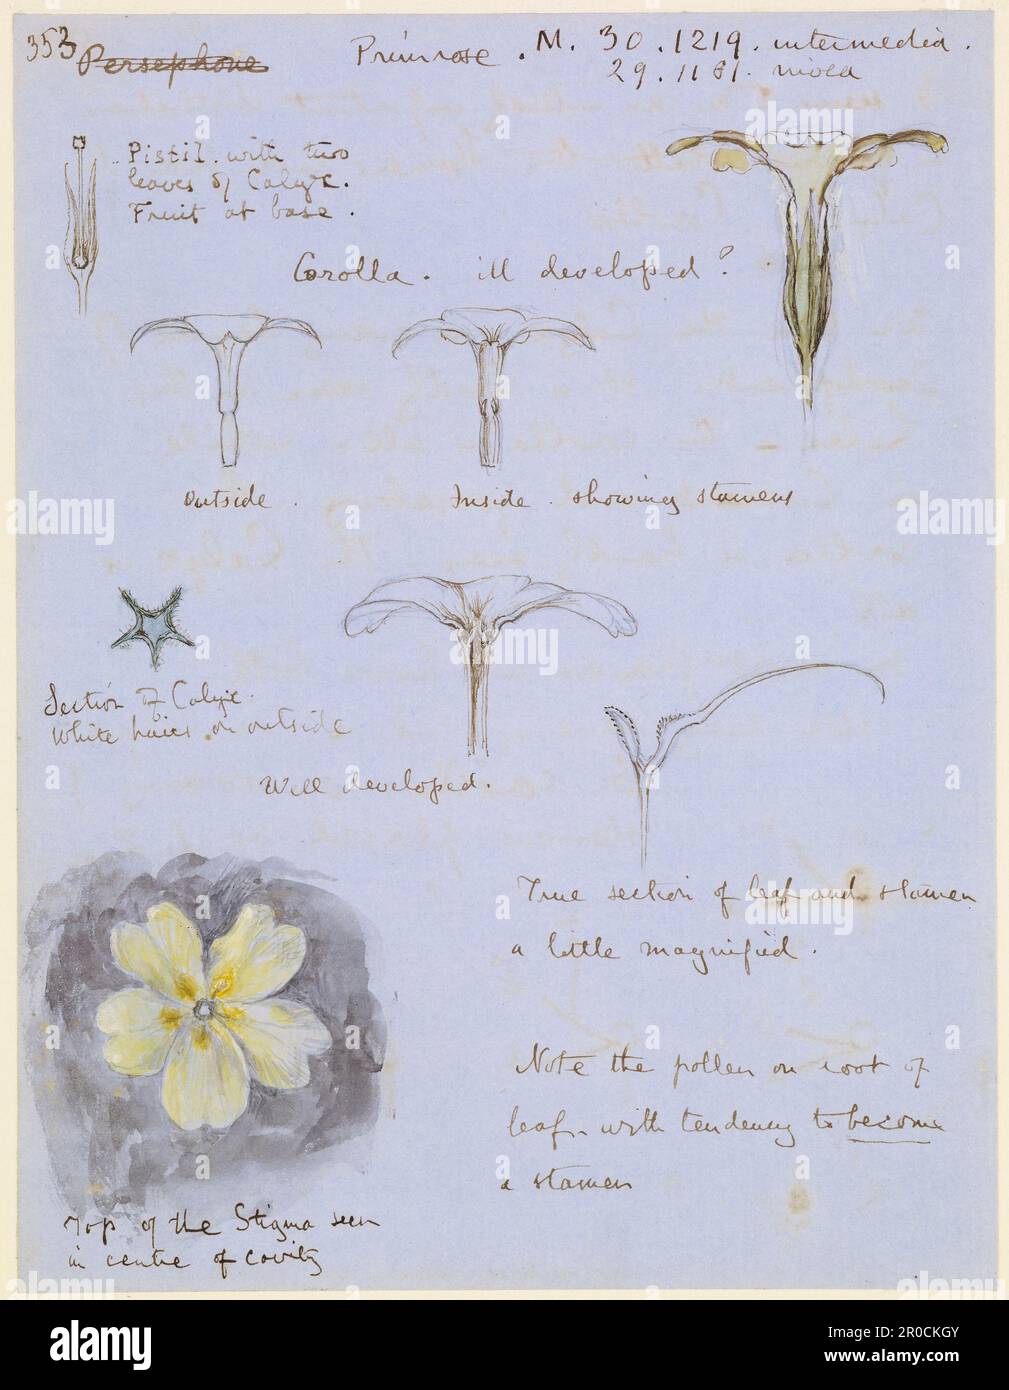 353
Persephone
Primrose . M. 30 . 1219 . intermedia .
29 . 1181 . viola
Pistil . with two
leaves of Calyx .
Fruit at base .
Corolla . ill developed ?
outside .
Inside . showing stamens
Section of Calyx .
White hairs on outside
Well developed .
True section of leaf and stamen
a little magnified .
Note the pollen on root of
leaf . with tendency to become
a stamen
Top of the Stigma seen
in centre of cavity
alamy
Image ID: 2R0CKGY
www.alamy.com